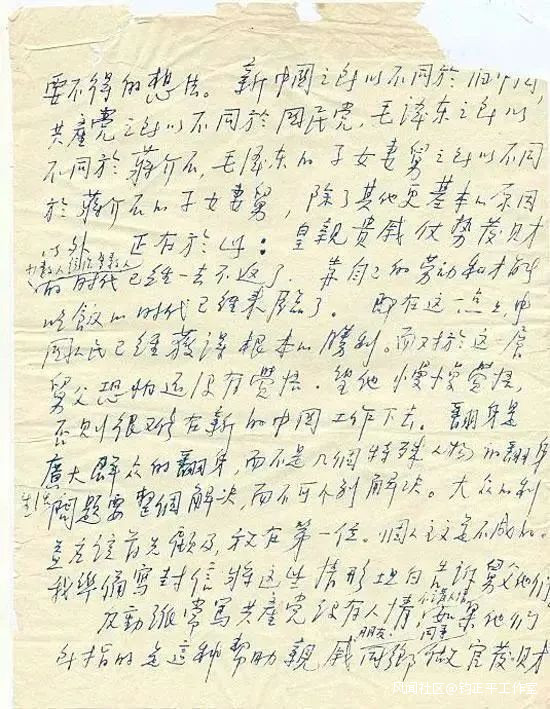 要不得的想法。新中国之所以不同於旧中国,
共產党之所以不同於国民党,毛泽东之所以
不同於蒋介石,毛泽东的子女妻舅之所以不同
於蒋介石的子女妻舅,除了其他更基本的原因
以外,正在於此:皇親貴戚仗势發财
少数人统治多数人
的时代已经一去不返了。靠自己的劳动和才能
吃飯的时代已经来臨了。在这一点上,中
国人民已经獲得根本的勝利。而对於这一层
舅父恐怕还没有覺悟。望他慢慢覺悟,
否则很难在新的中国工作下去。翻身是
廣大群众的翻身,而不是几個特殊人物的翻身
生活
問題要整個解决,而不可個别解决。大众的利
益应该首先顧及,放在第一位。個人主义是不成的。
我準備寫封信將这些情形坦白告訴舅父他们
不讲人情
反動派常骂共產党没有人情,如果他们
朋友 同事
所指的是这种帮助親戚同鄉做官發财
风闻社区@钧正平工作室